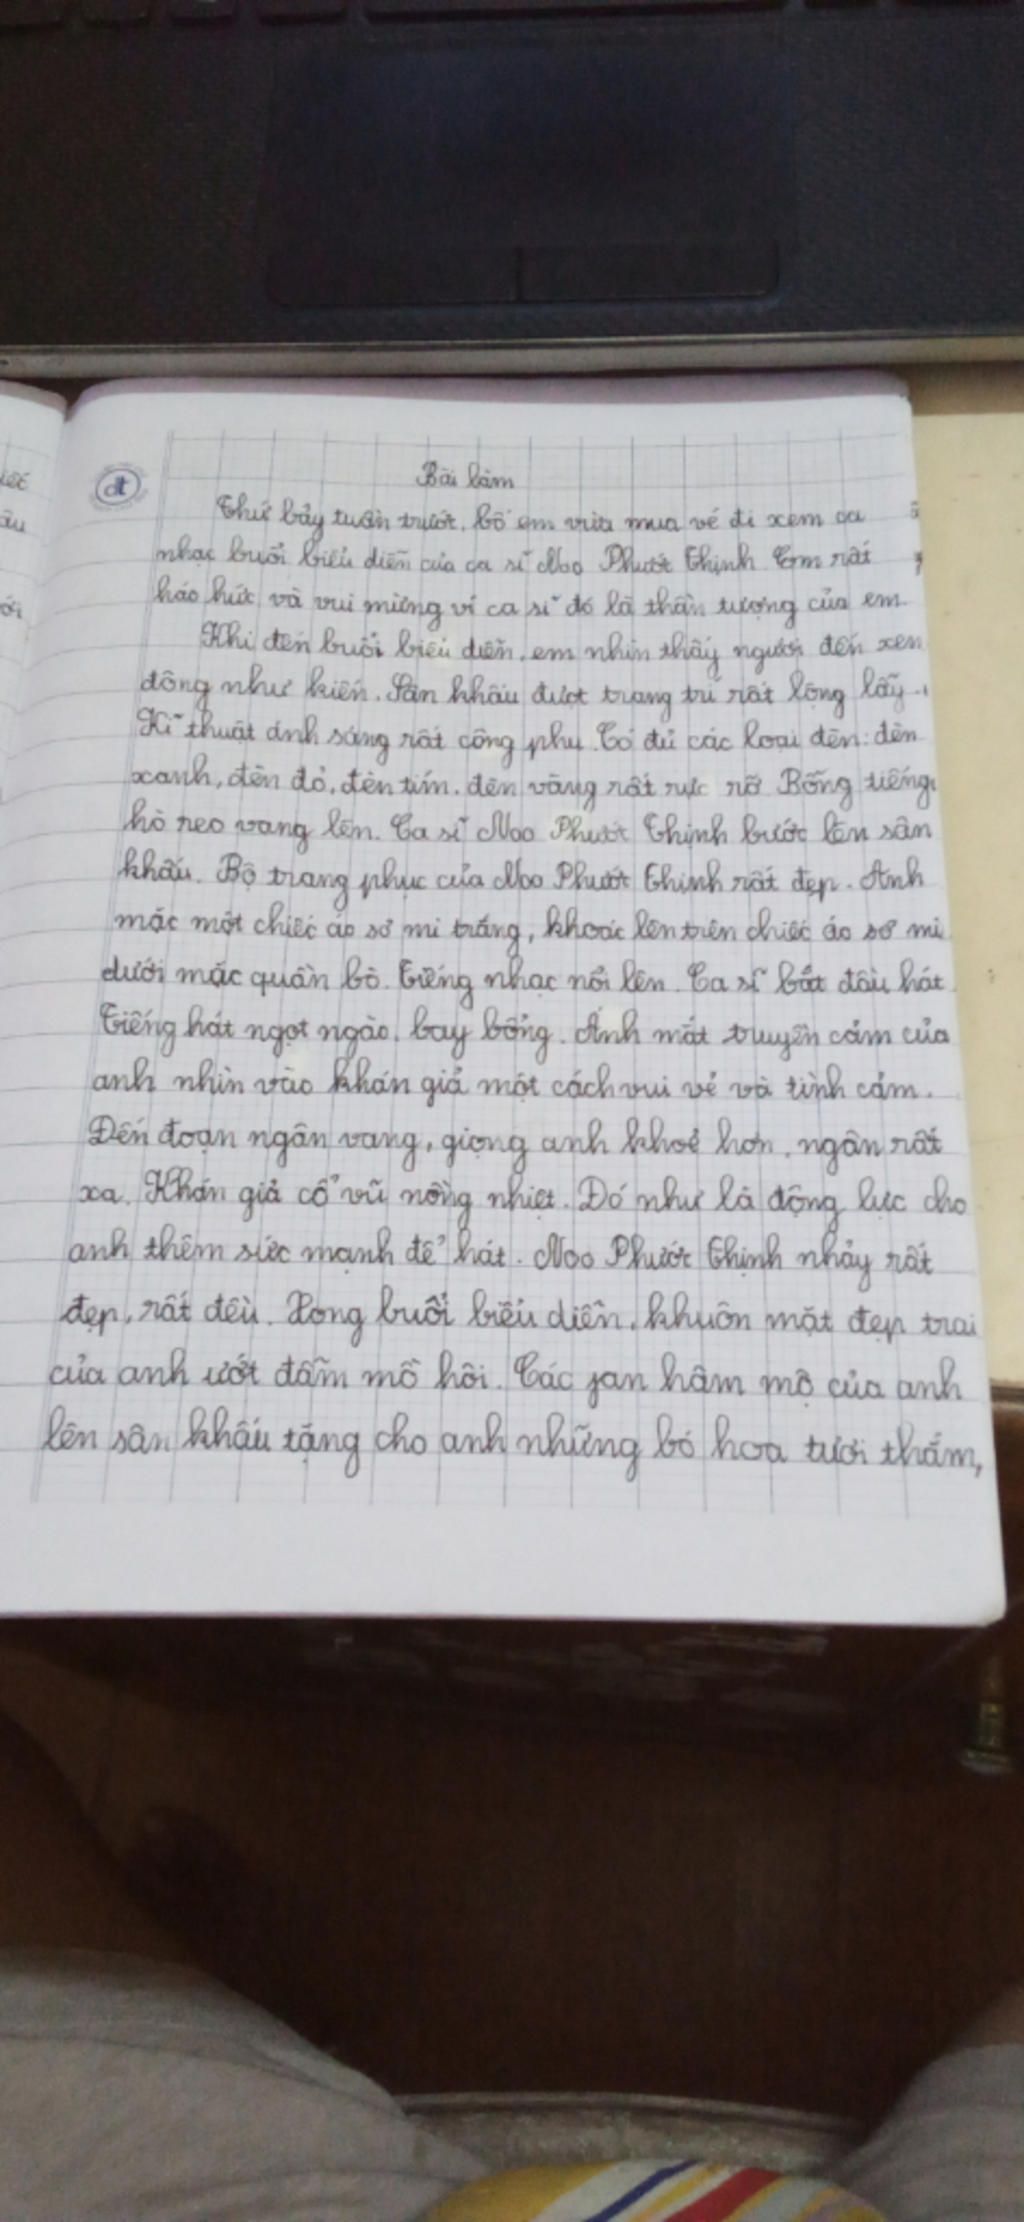 Bài làm
Thứ bảy tuần trước, bố em vừa mua vé đi xem ca
nhạc buổi biểu diễn của ca sĩ Noo Phước Thịnh. Em rất
háo hức và vui mừng vì ca sĩ đó là thần tượng của em.
Khi đến buổi biểu diễn, em nhìn thấy người đến xem
đông như kiến. Sân khấu được trang trí rất lộng lẫy.
Kĩ thuật ánh sáng rất công phu. Có đủ các loại đèn: đèn
xanh, đèn đỏ, đèn tím, đèn vàng rất rực rỡ. Bỗng tiếng
hò reo vang lên. Ca sĩ Noo Phước Thịnh bước lên sân
khấu. Bộ trang phục của Noo Phước Thịnh rất đẹp. Anh
mặc một chiếc áo sơ mi trắng, khoác lên trên chiếc áo sơ mi
dưới mặc quần bò. Tiếng nhạc nổi lên. Ca sĩ bắt đầu hát.
Tiếng hát ngọt ngào, bay bổng. Ánh mắt truyền cảm của
anh nhìn vào khán giả một cách vui vẻ và tình cảm.
Đến đoạn ngân vang, giọng anh khoẻ hơn, ngân rất
xa. Khán giả cổ vũ nồng nhiệt. Đó như là động lực cho
anh thêm sức mạnh để hát. Noo Phước Thịnh nhảy rất
đẹp, rất đều. Xong buổi biểu diễn, khuôn mặt đẹp trai
của anh ướt đẫm mồ hôi. Các fan hâm mộ của anh
lên sân khấu tặng cho anh những bó hoa tươi thắm,